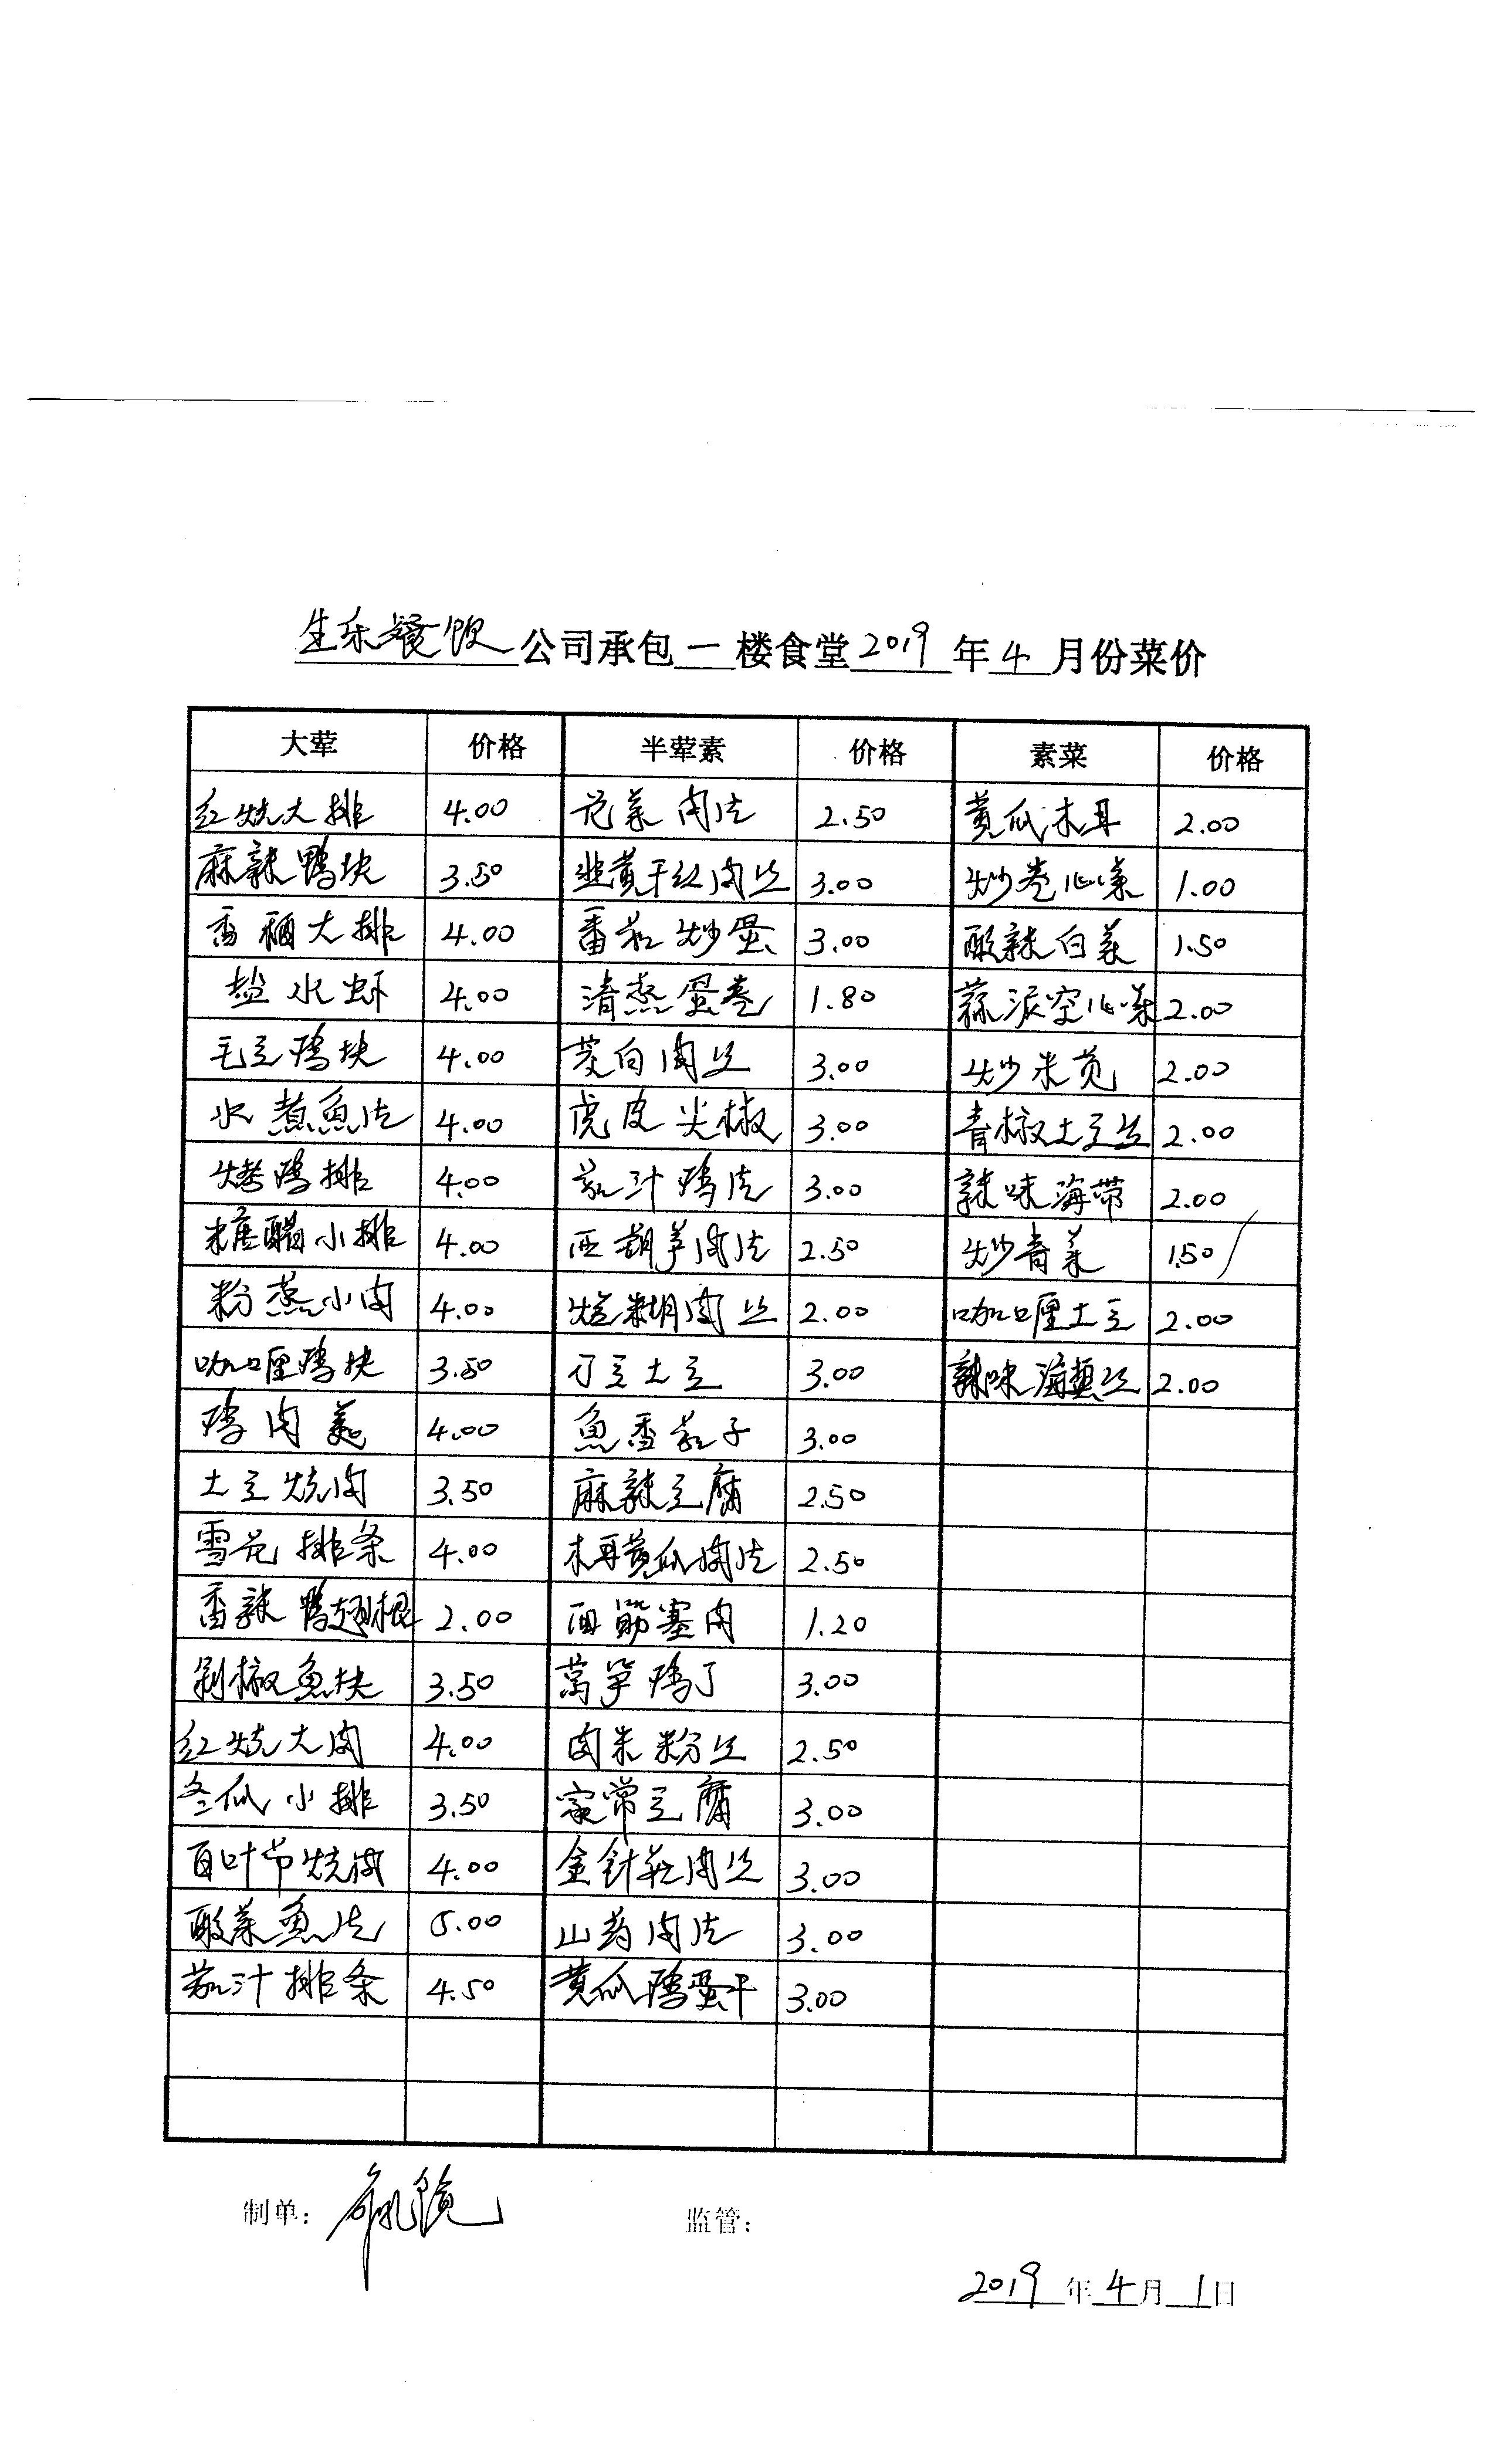 生乐餐饮公司承包一楼食堂2019年4月份菜价
大荤 价格 半荤素 价格 素菜 价格
红烧大排 4.00 花菜肉片 2.50 黄瓜木耳 2.00
麻辣鸭块 3.50 韭黄干红肉丝 3.00 炒卷心菜 1.00
香稻大排 4.00 番茄炒蛋 3.00 酸辣白菜 1.50
盐水虾 4.00 清蒸蛋卷 1.80 蒜泥空心菜 2.00
毛豆鸡块 4.00 茭白肉丝 3.00 炒米苋 2.00
水煮鱼片 4.00 虎皮尖椒 3.00 青椒土豆丝 2.00
烤鸡排 4.00 茄汁鸡片 3.00 辣味海带 2.00
糖醋小排 4.00 西葫芦肉片 2.50 炒青菜 1.50
粉蒸小肉 4.00 烂糊肉丝 2.00 咖喱土豆 2.00
咖喱鸡块 3.50 刀豆土豆 3.00 辣味海蜇丝 2.00
鸡肉羹 4.00 魚香茄子 3.00
土豆烧肉 3.50 麻辣豆腐 2.50
雪花排条 4.00 木耳黄瓜肉片 2.50
香辣鸭翅根 2.00 面筋塞肉 1.20
剁椒魚块 3.50 莴笋鸡丁 3.00
红烧大肉 4.00 肉末粉丝 2.50
冬瓜小排 3.50 家常豆腐 3.00
百叶节烧肉 4.00 金针菇肉丝 3.00
酸菜魚片 5.00 山药肉片 3.00
茄汁排条 4.50 黄瓜鸡蛋干 3.00
制单： 监管：
2019年4月1日